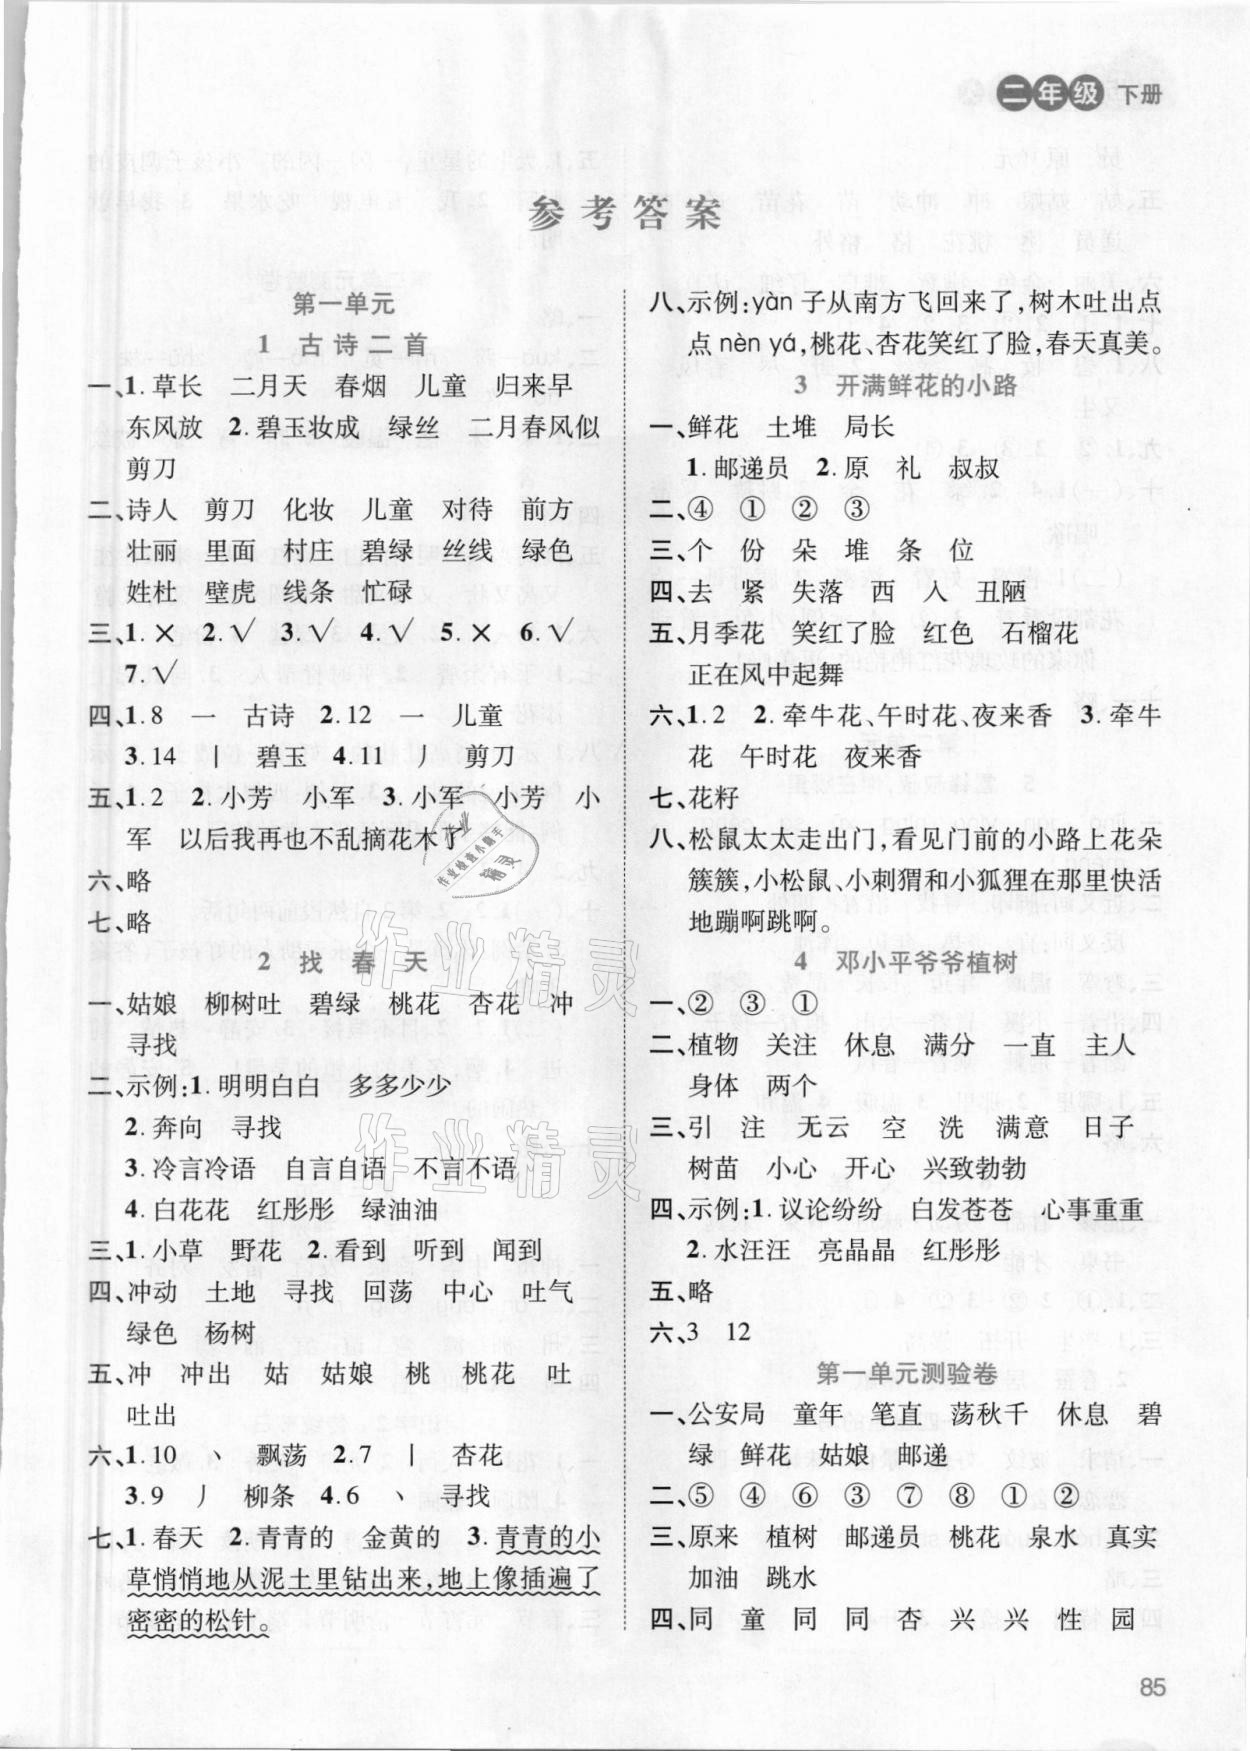 二年级 下册
参考答案
第一单元
1 古诗二首
一、1.草长 二月天 春烟 儿童 归来早
东风放 2.碧玉妆成 绿丝 二月春风似
剪刀
二、诗人 剪刀 化妆 儿童 对待 前方
壮丽 里面 村庄 碧绿 丝线 绿色
姓杜 壁虎 线条 忙碌
三、1.× 2.√ 3.√ 4.√ 5.× 6.√
7.√
四、1.8 一 古诗 2.12 一 儿童
3.14 丨 碧玉 4.11 丿 剪刀
五、1.2 2.小芳 小军 3.小军 小芳 小
军 以后我再也不乱摘花木了
六、略
七、略
2 找春天
一、姑娘 柳树吐 碧绿 桃花 杏花 冲
寻找
二、示例:1.明明白白 多多少少
2.奔向 寻找
3.冷言冷语 自言自语 不言不语
4.白花花 红彤彤 绿油油
三、1.小草 野花 2.看到 听到 闻到
四、冲动 土地 寻找 回荡 中心 吐气
绿色 杨树
五、冲 冲出 姑 姑娘 桃 桃花 吐
吐出
六、1.10 丶 飘荡 2.7 丨 杏花
3.9 丿 柳条 4.6 丶 寻找
七、1.春天 2.青青的 金黄的 3.青青的小
草悄悄地从泥土里钻出来,地上像插遍了
密密的松针。
八、示例:yàn子从南方飞回来了,树木吐出点
点nèn yá,桃花、杏花笑红了脸,春天真美。
3 开满鲜花的小路
一、鲜花 土堆 局长
1.邮递员 2.原 礼 叔叔
二、④ ① ② ③
三、个 份 朵 堆 条 位
四、去 紧 失落 西 人 丑陋
五、月季花 笑红了脸 红色 石榴花
正在风中起舞
六、1.2 2.牵牛花、午时花、夜来香 3.牵牛
花 午时花 夜来香
七、花籽
八、松鼠太太走出门,看见门前的小路上花朵
簇簇,小松鼠、小刺猬和小狐狸在那里快活
地蹦啊跳啊。
4 邓小平爷爷植树
一、② ③ ①
二、植物 关注 休息 满分 一直 主人
身体 两个
三、引 注 无云 空 洗 满意 日子
树苗 小心 开心 兴致勃勃
四、示例:1.议论纷纷 白发苍苍 心事重重
2.水汪汪 亮晶晶 红彤彤
五、略
六、3 12
第一单元测验卷
一、公安局 童年 笔直 荡秋千 休息 碧
绿 鲜花 姑娘 邮递
二、⑤ ④ ⑥ ③ ⑦ ⑧ ① ②
三、原来 植树 邮递员 桃花 泉水 真实
加油 跳水
四、同 童 同 同 杏 兴 兴 性 园
85
作业精灵
作业精灵